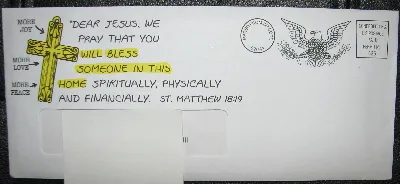 MORE
JOY
MORE
LOVE
MORE
PEACE
"DEAR JESUS, WE
PRAY THAT YOU
WILL BLESS
SOMEONE IN THIS
HOME SPIRITUALLY, PHYSICALLY
AND FINANCIALLY. ST. MATTHEW 18:19